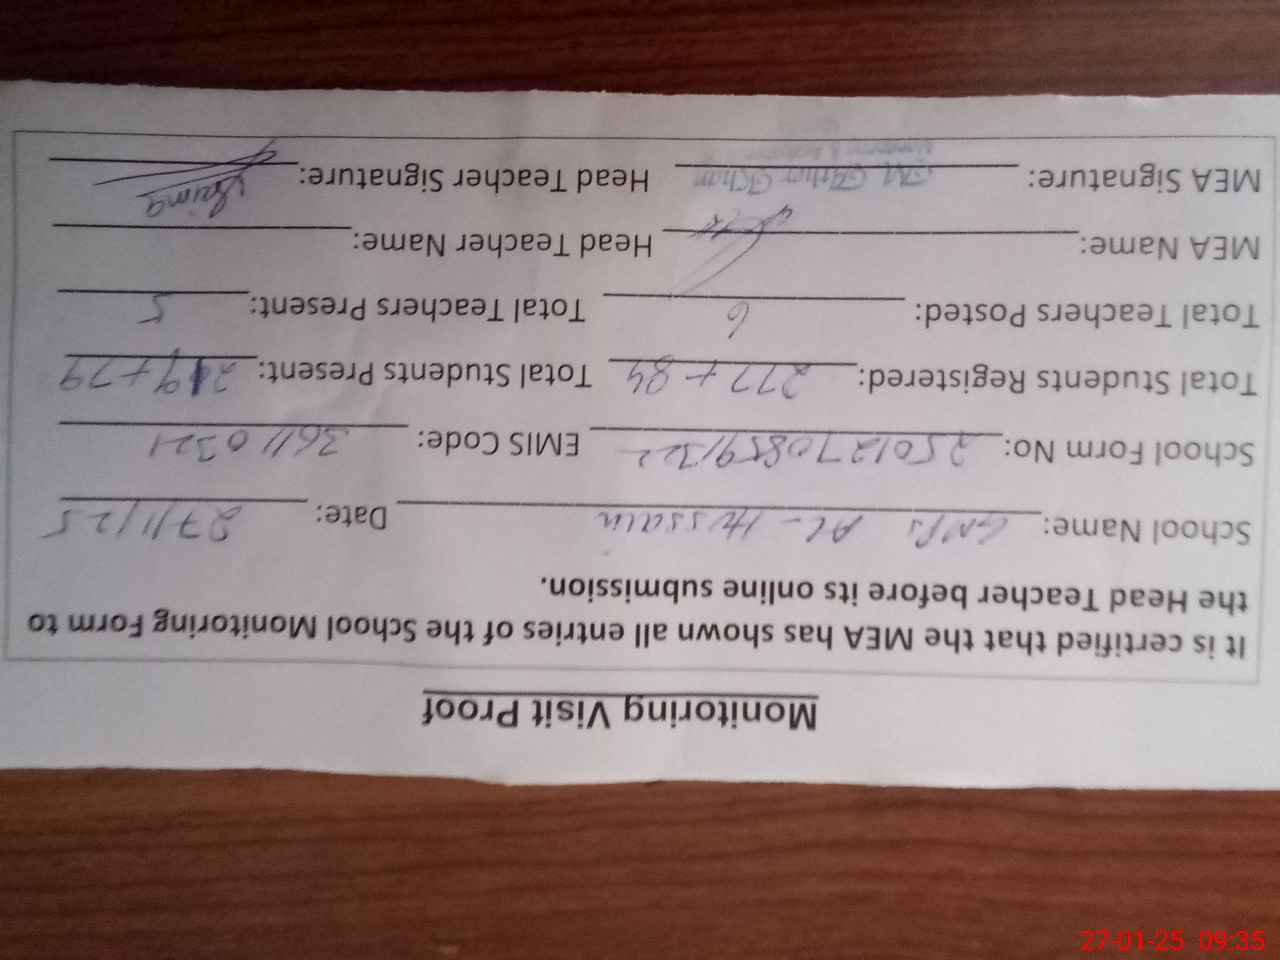 Monitoring Visit Proof
It is certified that the MEA has shown all entries of the School Monitoring Form to
the Head Teacher before its online submission.
School Name: GMPS Al-Hussain Date: 27/1/25
School Form No: 25012708591322 EMIS Code: 36110321
Total Students Registered: 277+84 Total Students Present: 219+79
Total Teachers Posted: 6 Total Teachers Present: 5
MEA Name: Head Teacher Name:
MEA Signature: Head Teacher Signature:
27-01-25 09:35